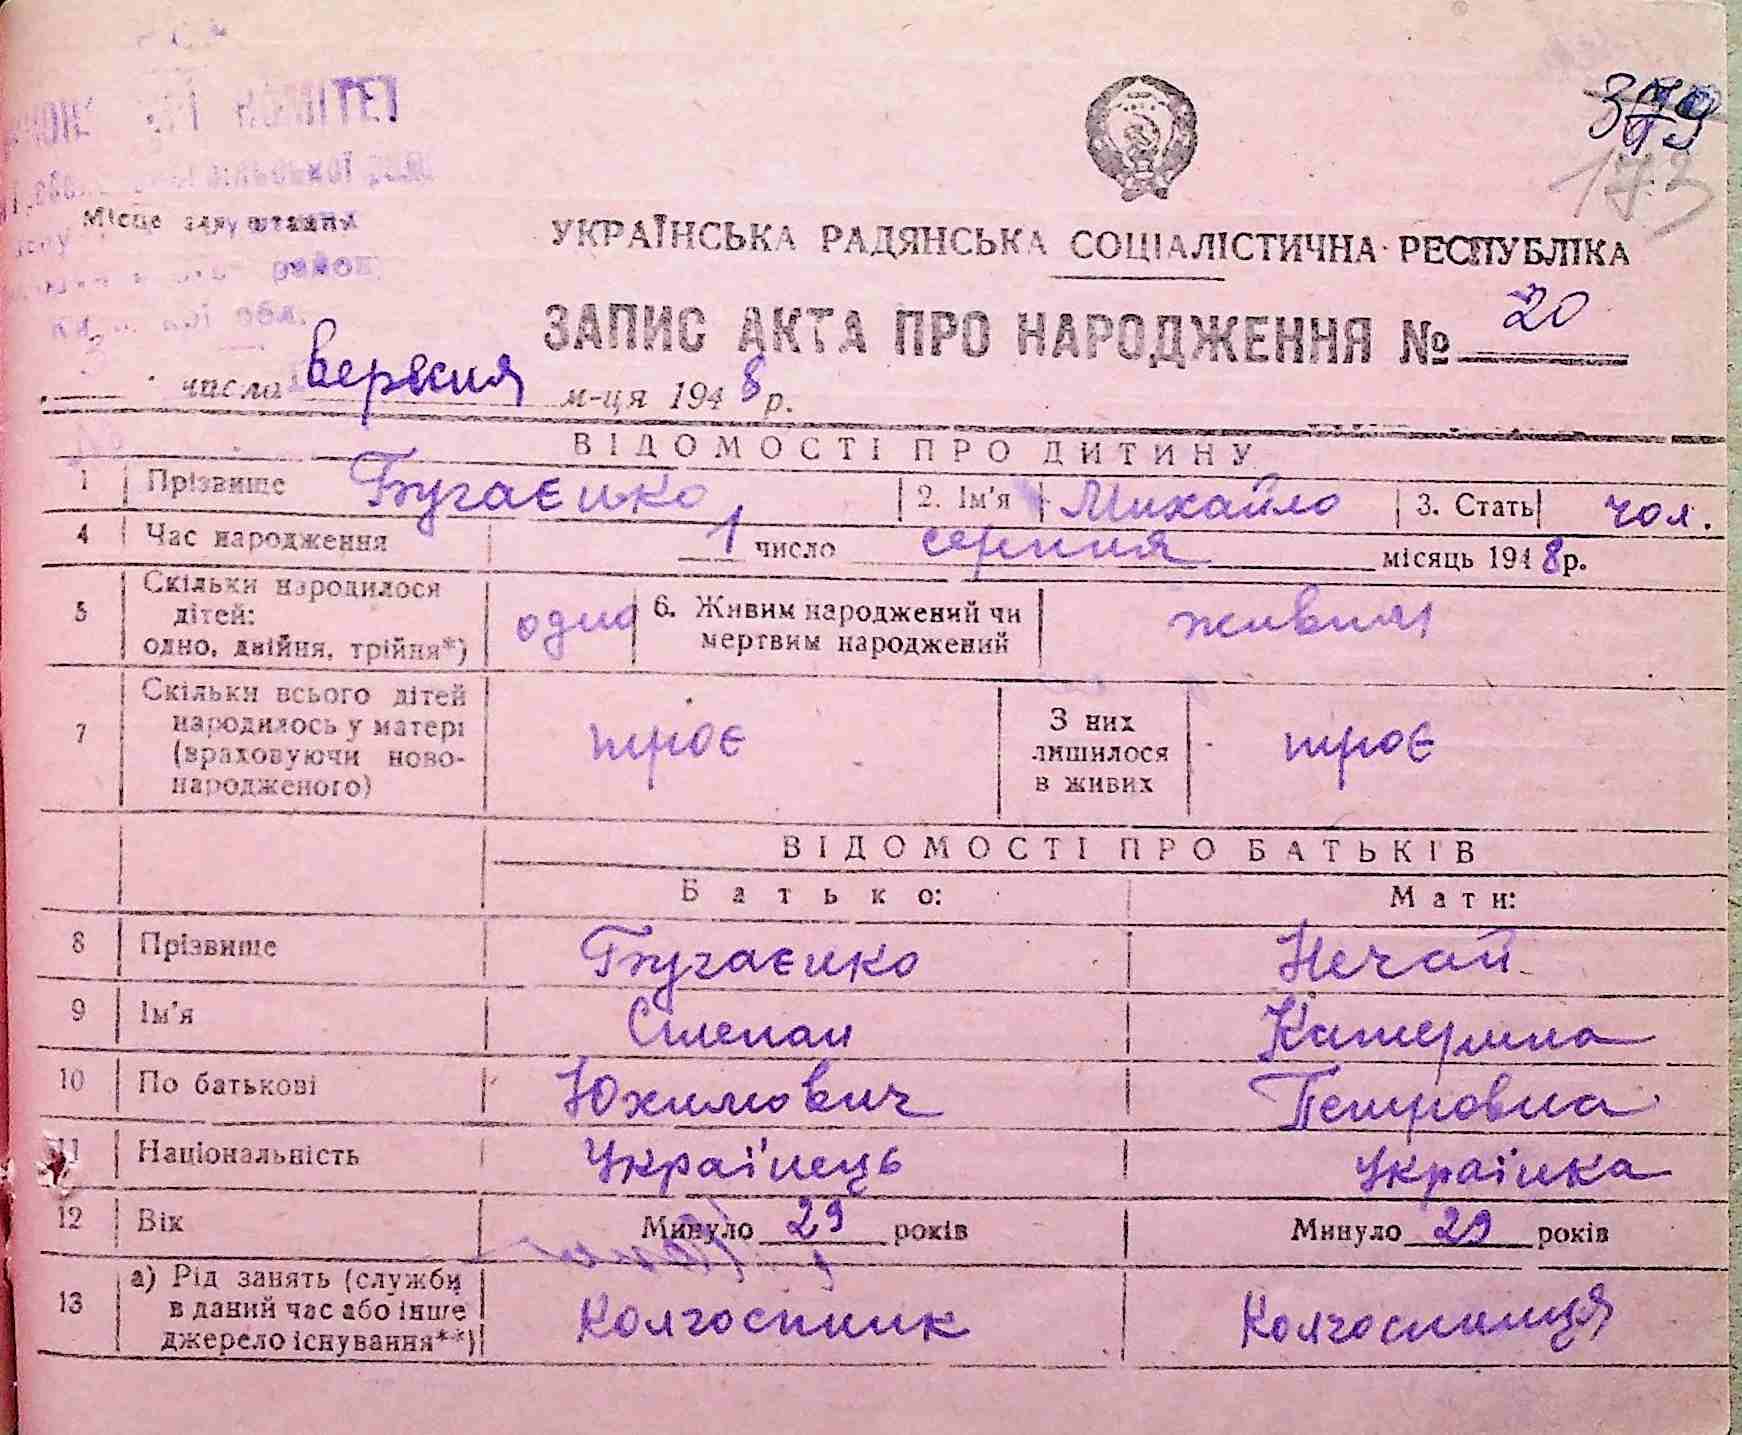 КОМІТЕТ
сільської
Місце
району
обл.
379
173
УКРАЇНСЬКА РАДЯНСЬКА СОЦІАЛІСТИЧНА РЕСПУБЛІКА
ЗАПИС АКТА ПРО НАРОДЖЕННЯ № 20
3 числа вересня м-ця 1948 р.
ВІДОМОСТІ ПРО ДИТИНУ
1 Прізвище Бугаєнко 2. Ім'я Михайло 3. Стать чол.
4 Час народження 1 число серпня місяць 1948 р.
5 Скільки народилося дітей: одно, двійня, трійня*) одно 6. Живим народжений чи мертвим народжений живим
7 Скільки всього дітей народилось у матері (враховуючи ново-народженого) троє З них лишилося в живих троє
ВІДОМОСТІ ПРО БАТЬКІВ
Батько: Мати:
8 Прізвище Бугаєнко Нечай
9 Ім'я Степан Катерина
10 По батькові Юхимович Петровна
11 Національність Українець Українка
12 Вік Минуло 29 років Минуло 29 років
13 а) Рід занять (служби в даний час або інше джерело існування**) Колгоспник Колгоспниця